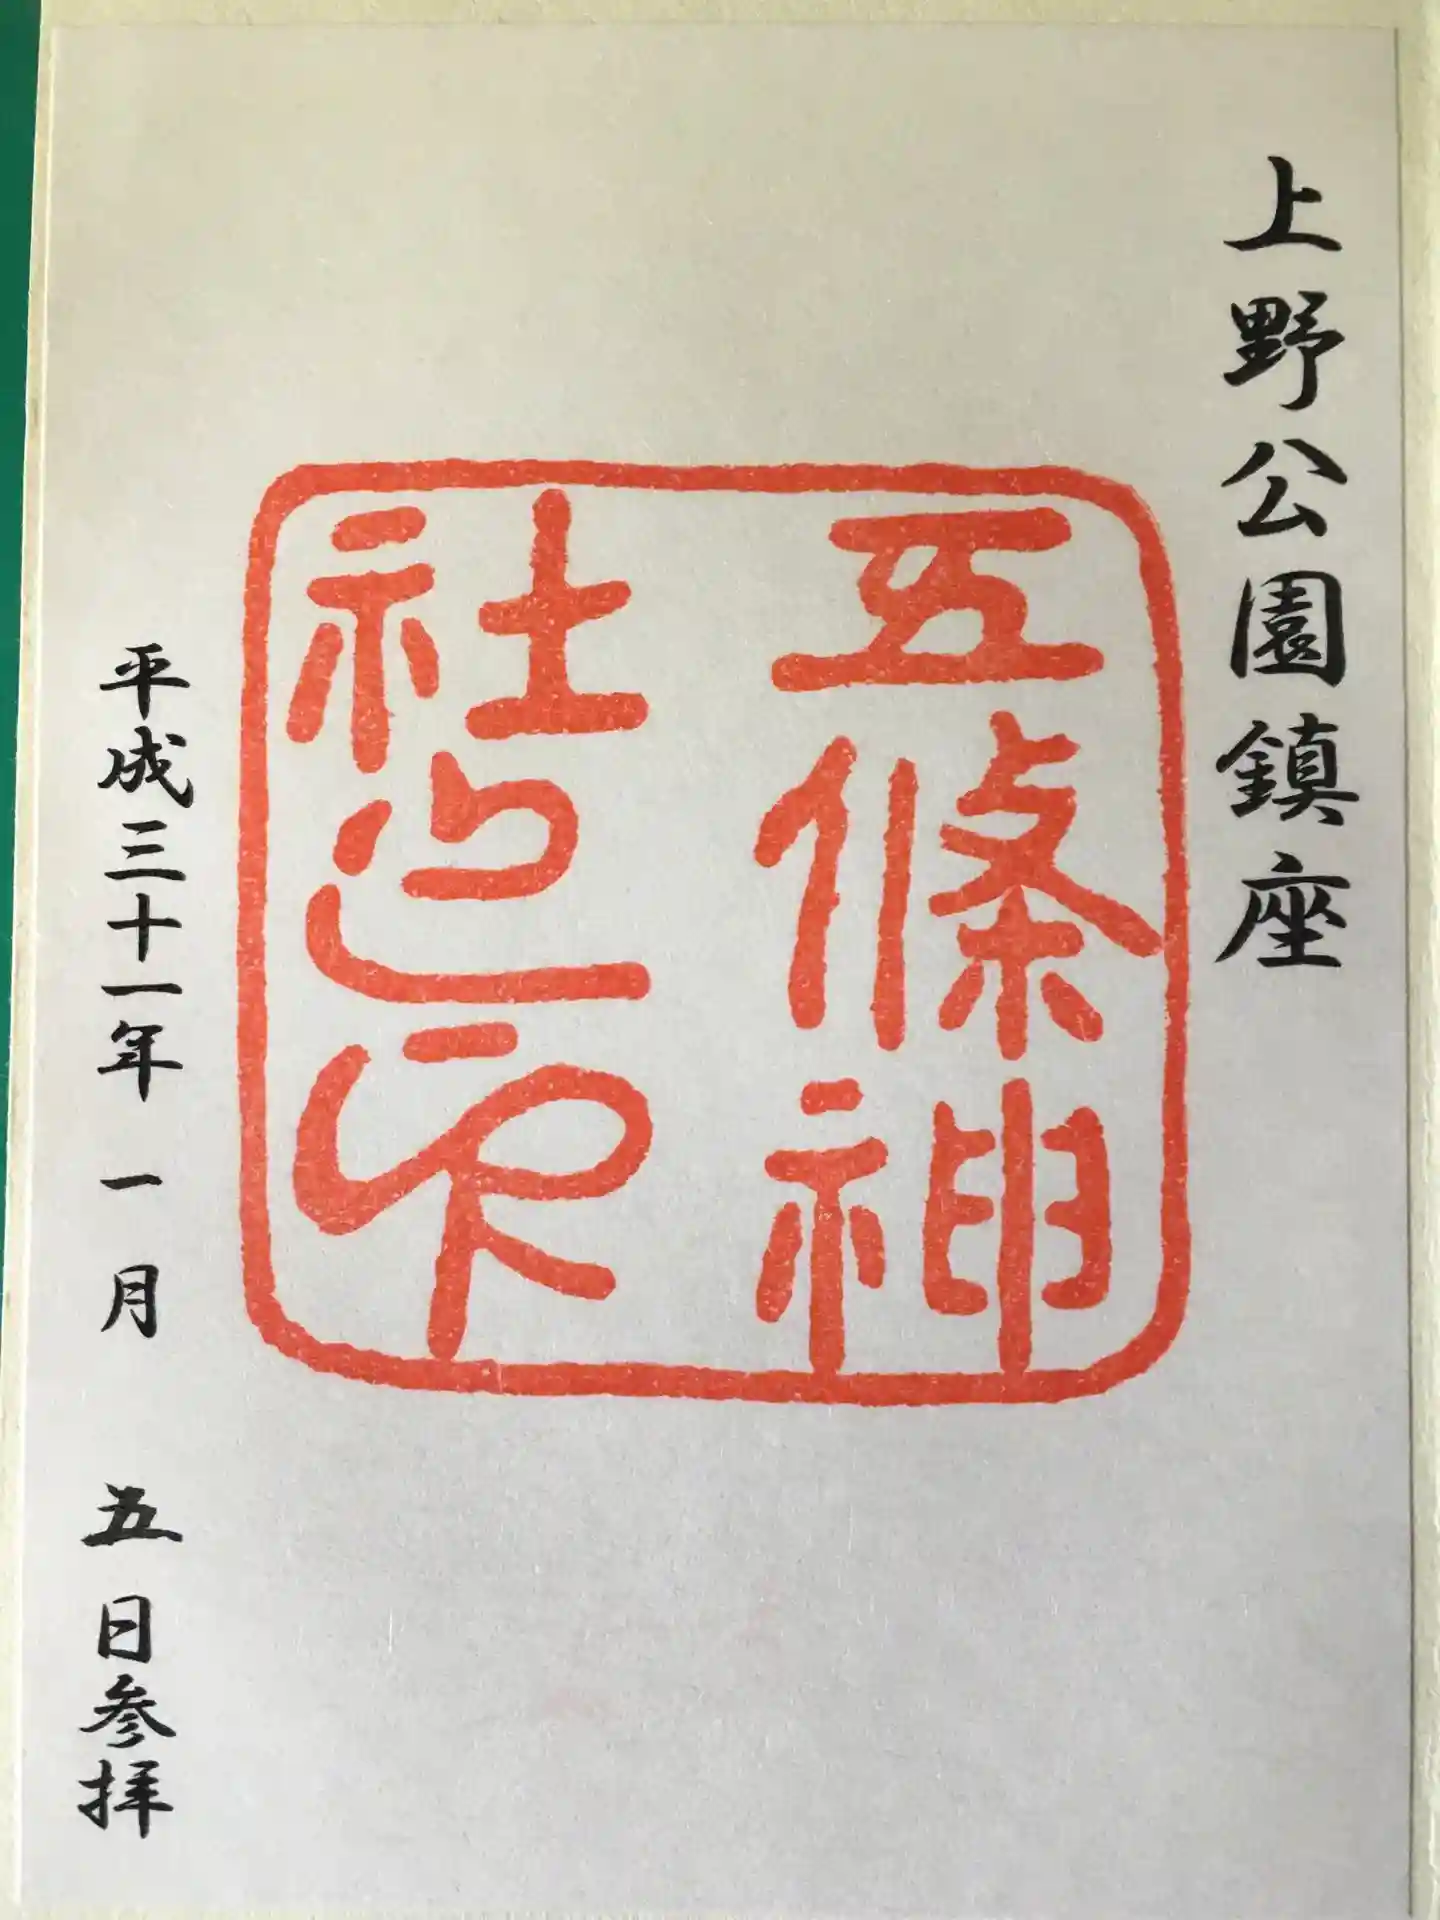 上野公園鎮座
五條神
社之印
平成三十一年一月五日参拝